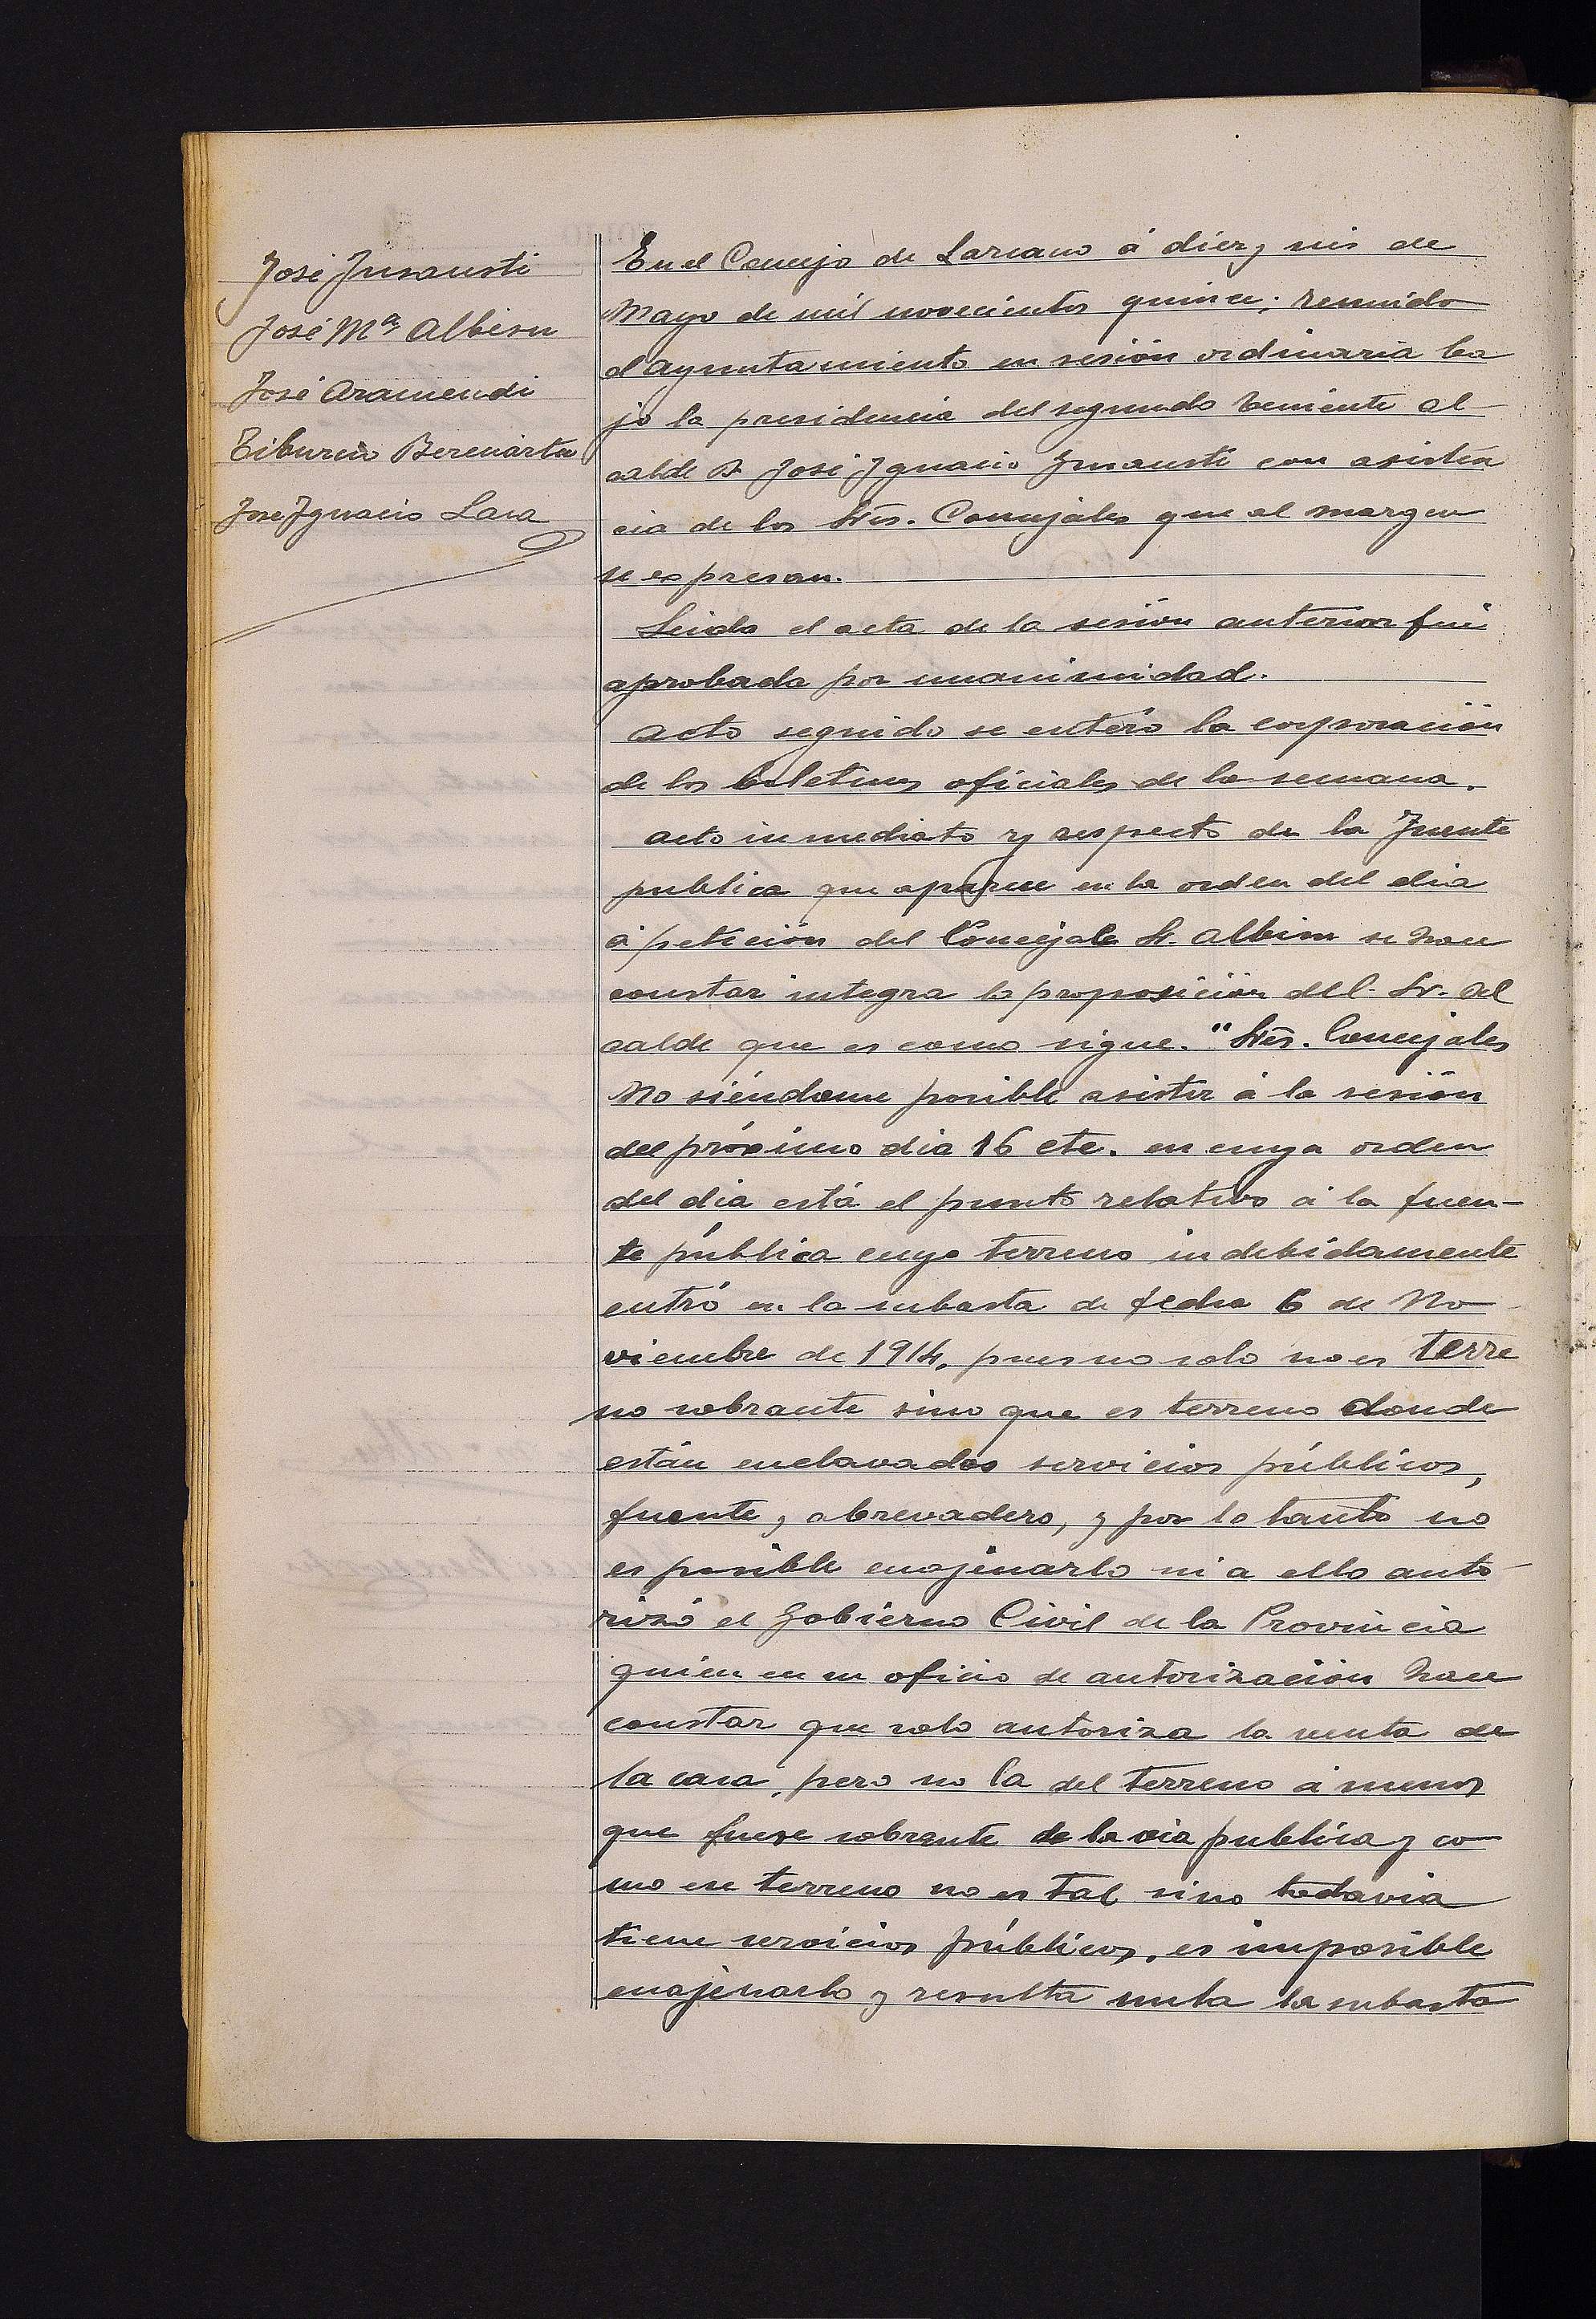 José Insausti
José Mª Albisu
José Aramendi
Tiburcio Bereciartu
José Ignacio Lasa
En el Concejo de Lazcano á diez y seis de
Mayo de mil novecientos quince; reunido
el Ayuntamiento en sesión ordinaria ba
jo la presidencia del segundo teniente al
calde D. José Ignacio Insausti con asisten
cia de los Sres. Concejales que al margen
se expresan.
Leida el acta de la sesión anterior fué
aprobada por unanimidad.
Acto seguido se enteró la corporación
de los boletines oficiales de la semana.
Acto inmediato y respecto de la Fuente
publica que aparece en la orden del dia
á petición del Concejale Sr. Albisu se hace
constar integra la proposición del Sr. Al
calde que es como sigue. "Sres. Concejales
No siéndome posible asistir á la sesión
del próximo dia 16 cte. en cuya orden
del dia está el punto relativo á la fuen-
te pública cuyo terreno indebidamente
entró en la subasta de fecha 6 de No
viembre de 1914, pues no solo no es terre
no sobrante sino que es terreno donde
están enclavados servicios públicos,
fuente, abrevadero, y por lo tanto no
es posible enajenarlo ni a ello auto
rizó el Gobierno Civil de la Provincia
quien en su oficio de autorización hace
constar que solo autoriza la venta de
la casa, pero no la del terreno á menos
que fuese sobrante de la via publica y co
mo ese terreno no es tal sino todavia
tiene servicios públicos, es imposible
enajenarlo y resulta nula la subasta